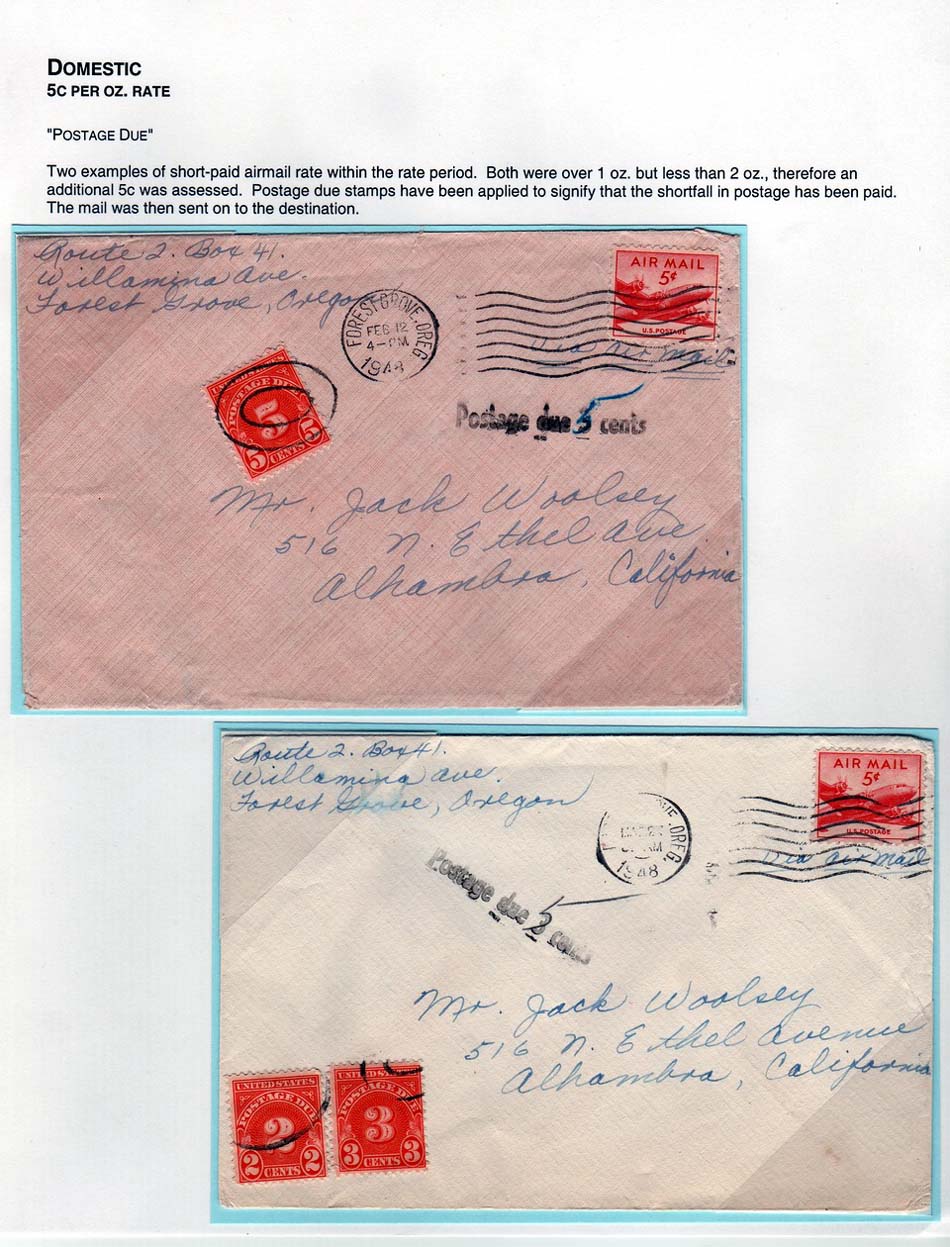 DOMESTIC
5C PER OZ. RATE
"POSTAGE DUE"
Two examples of short-paid airmail rate within the rate period. Both were over 1 oz. but less than 2 oz., therefore an
additional 5c was assessed. Postage due stamps have been applied to signify that the shortfall in postage has been paid.
The mail was then sent on to the destination.
Route 2. Box 41.
Willamina Ave.
Forest Grove, Oregon
FOREST GROVE, OREG.
FEB 12
4-PM
1948
AIR MAIL
5¢
U.S. POSTAGE
Via Air Mail
UNITED STATES
POSTAGE DUE
5
5 CENTS 5
Postage due 5 cents
Mr. Jack Woolsey
516 N. Ethel Ave.
Alhambra, California
Route 2. Box 41.
Willamina Ave.
Forest Grove, Oregon
OREG.
1948
AIR MAIL
5¢
U.S. POSTAGE
Via Air Mail
Postage due 5 cents
Mr. Jack Woolsey
516 N. Ethel Avenue
Alhambra, California
UNITED STATES
POSTAGE DUE
2
2 CENTS 2
UNITED STATES
POSTAGE DUE
3
3 CENTS 3